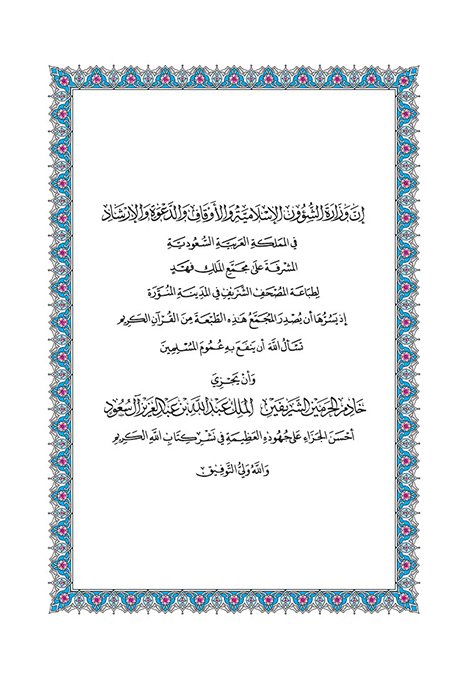 إِنَّ وَزَارَةَ الشُّؤُونِ الإِسْلَامِيَّةِ وَالأَوْقَافِ وَالدَّعْوَةِ وَالإِرْشَادِ
فِي المَمْلَكَةِ العَرَبِيَّةِ السُّعُودِيَّةِ
المُشْرِفَةَ عَلَى مُجَمَّعِ المَلِكِ فَهَدٍ
لِطِبَاعَةِ المُصْحَفِ الشَّرِيفِ فِي المَدِينَةِ المُنَوَّرَةِ
إِذْ يَسُرُّهَا أَن يُصْدِرَ المُجَمَّعُ هَذِهِ الطَّبْعَةَ مِنَ القُرْآنِ الكَرِيمِ
تَسْأَلُ اللَّهَ أَن يَنْفَعَ بِهِ عُمُومَ المُسْلِمِينَ
وَأَنْ يَجْزِيَ
خَادِمَ الحَرَمَيْنِ الشَّرِيفَيْنِ المَلِكَ عَبْدَ اللَّهِ بْنَ عَبْدِ العَزِيزِ آلَ سُعُود
أَحْسَنَ الجَزَاءِ عَلَى جُهُودِهِ العَظِيمَةِ فِي نَشْرِ كِتَابِ اللَّهِ الكَرِيمِ
وَاللَّهُ وَلِيُّ التَّوْفِيقِ